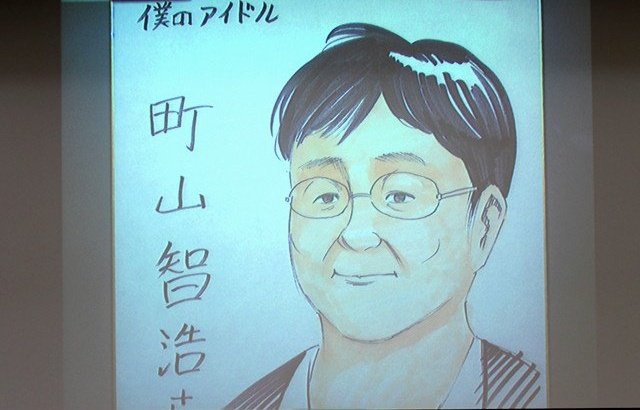 僕のアイドル
町山智浩さ